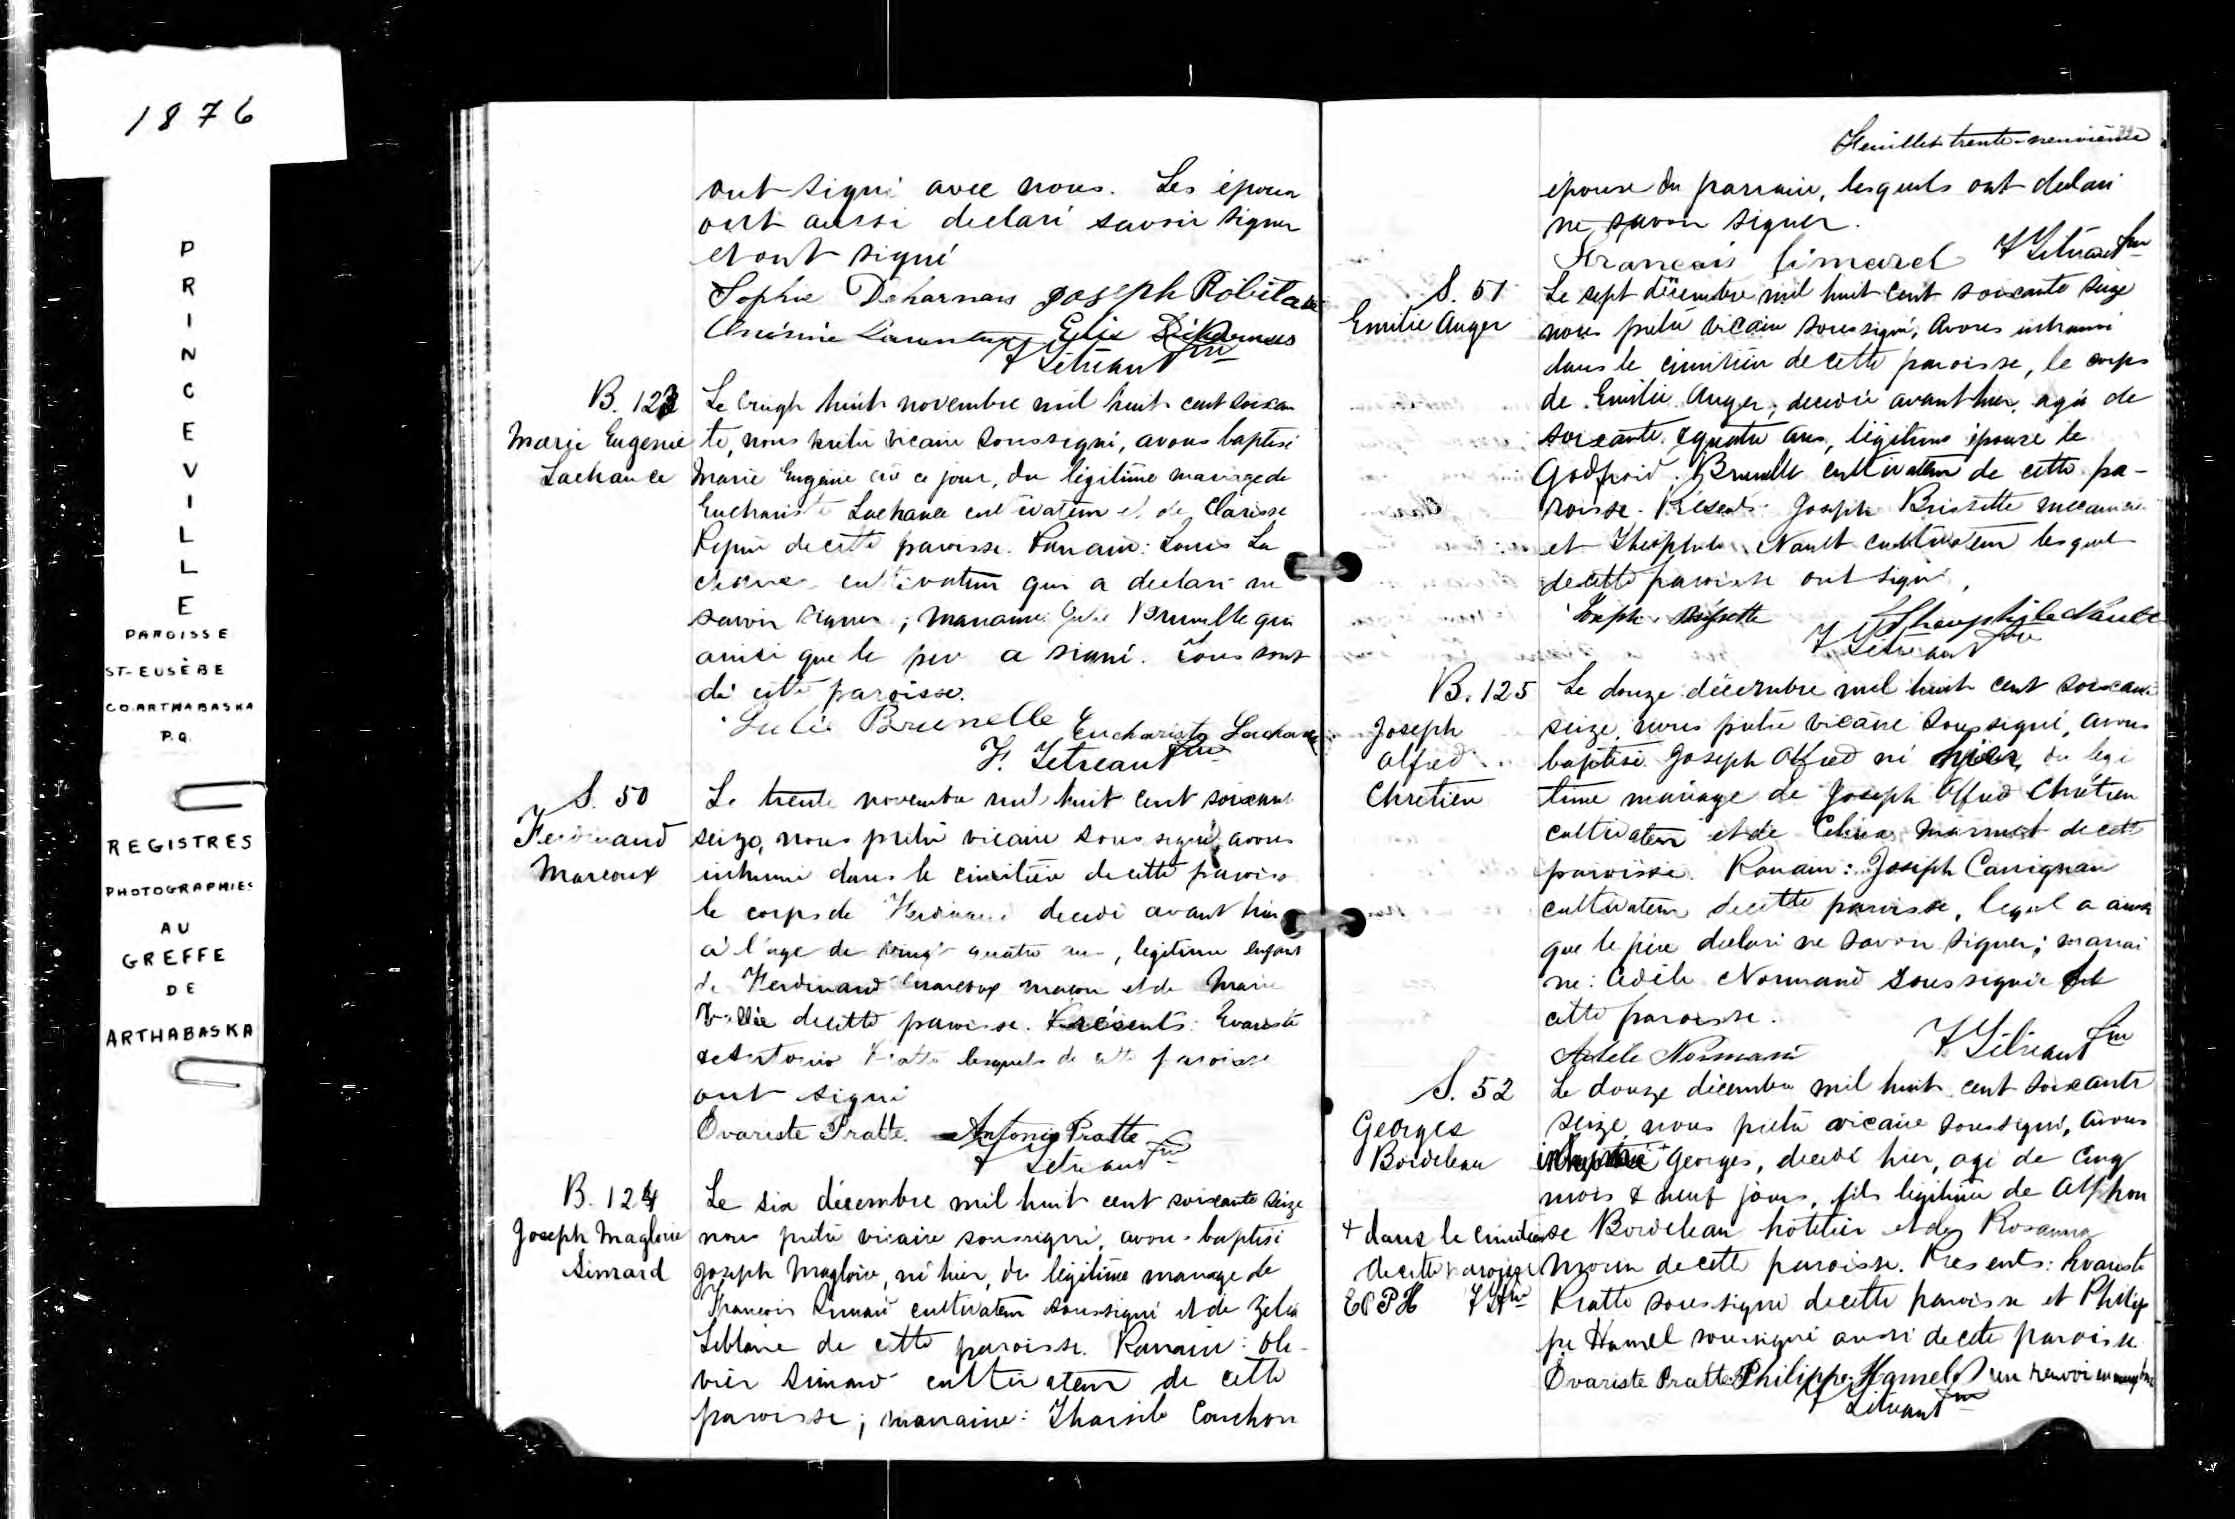 1876
PRINCEVILLE
PAROISSE
ST-EUSÈBE
CO. ARTHABASKA
P.Q.
REGISTRES
PHOTOGRAPHIES
AU
GREFFE
DE
ARTHABASKA
ont signé avec nous. Les époux
ont aussi declaré savoir signer
et ont signé
Sophie Deharnais Joseph Robitaille
Elie
F Tétreault Ptre
B. 123
Marie Eugenie
Lachance
Le vingt huit novembre mil huit cent soixan
te, nous prêtre vicaire soussigné, avons baptisé
Marie Eugénie née ce jour, du légitime mariage de
Euchariste Lachance cultivateur et de Clarisse
Pepin de cette paroisse. Parrain: Louis La
chance cultivateur qui a declaré ne
savoir signer; marraine Julie Brunelle qui
ainsi que le père a signé. Tous sont
de cette paroisse.
Julie Brunelle Euchariste Lachance
F. Tétreault Ptre
S. 50
Ferdinand
Marcoux
Le trente novembre mil huit cent soixante
seize, nous prêtre vicaire soussigné, avons
inhumé dans le cimetière de cette paroisse
le corps de Ferdinand decedé avant hier
à l'age de vingt quatre ans, legitime enfant
de Ferdinand Marcoux maçon et de Marie
Vallée de cette paroisse. Présents: Evariste
& Antonio Pratte lesquels de cette paroisse
ont signé
Evariste Pratte. Antonio Pratte
F Tétreault Ptre
B. 124
Joseph Magloire
Simard
Le six décembre mil huit cent soixante seize
nous prêtre vicaire soussigné, avons baptisé
Joseph Magloire, né hier, du légitime mariage de
François Simard cultivateur soussigné et de Zélia
Leblanc de cette paroisse. Parrain: Oli-
vier Simard cultivateur de cette
paroisse; marraine: Tharsile Couchon
Feuillet trente-neuvième
épouse du parrain, lesquels ont declaré
ne savoir signer.
François Simard F Tétreault Ptre
S. 51
Emilie Auger
Le sept décembre mil huit cent soixante seize
nous prêtre vicaire soussigné, avons inhumé
dans le cimetière de cette paroisse, le corps
de Emilie Auger, decedée avant hier, agée de
soixante & quatre ans, légitime épouse de
Godfroid Brunelle cultivateur de cette pa-
roisse. Présents: Joseph Brissette mecanicien
et Théophile Nault cultivateur lesquels
de cette paroisse ont signé.
Joseph Brissette Theophile Nault
F Tétreault Ptre
B. 125
Joseph
Alfred
Chretien
Le douze décembre mil huit cent soixante
seize, nous prêtre vicaire soussigné, avons
baptisé Joseph Alfred né hier, du légi
time mariage de Joseph Alfred Chrétien
cultivateur et de Celina de cette
paroisse. Parrain: Joseph Carrignan
cultivateur de cette paroisse, lequel a ainsi
que le père declaré ne savoir signer; marrai
ne: Adèle Normand soussignée de
cette paroisse.
Adele Normand F. Tétreault Ptre
S. 52
Georges
Bordeleau
Le douze décembre mil huit cent soixante
seize, nous prêtre vicaire soussigné, avons
inhumé + Georges, decedé hier, agé de cinq
mois & neuf jours, fils légitime de Alphon
se Bordeleau hôtelier et de Rosanna
Morin de cette paroisse. Présents: Evariste
Pratte soussigné de cette paroisse et Philip
pe Hamel soussigné aussi de cette paroisse
+ dans le cimetière
de cette paroisse
E P P H F T Ptre
Evariste Pratte Philippe Hamel un renvoi en marge bon
F Tétreault Ptre